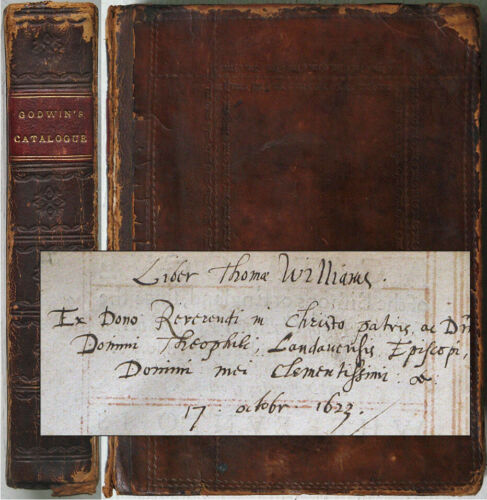 GODWIN'S
CATALOGUE
Liber Thomæ Williams.
Ex Dono Reverenti in Christo patris ac Dñi
Domini Theophili, Landavensis Episcopi,
Domini mei Clementissimi.
17 octobr 1623.